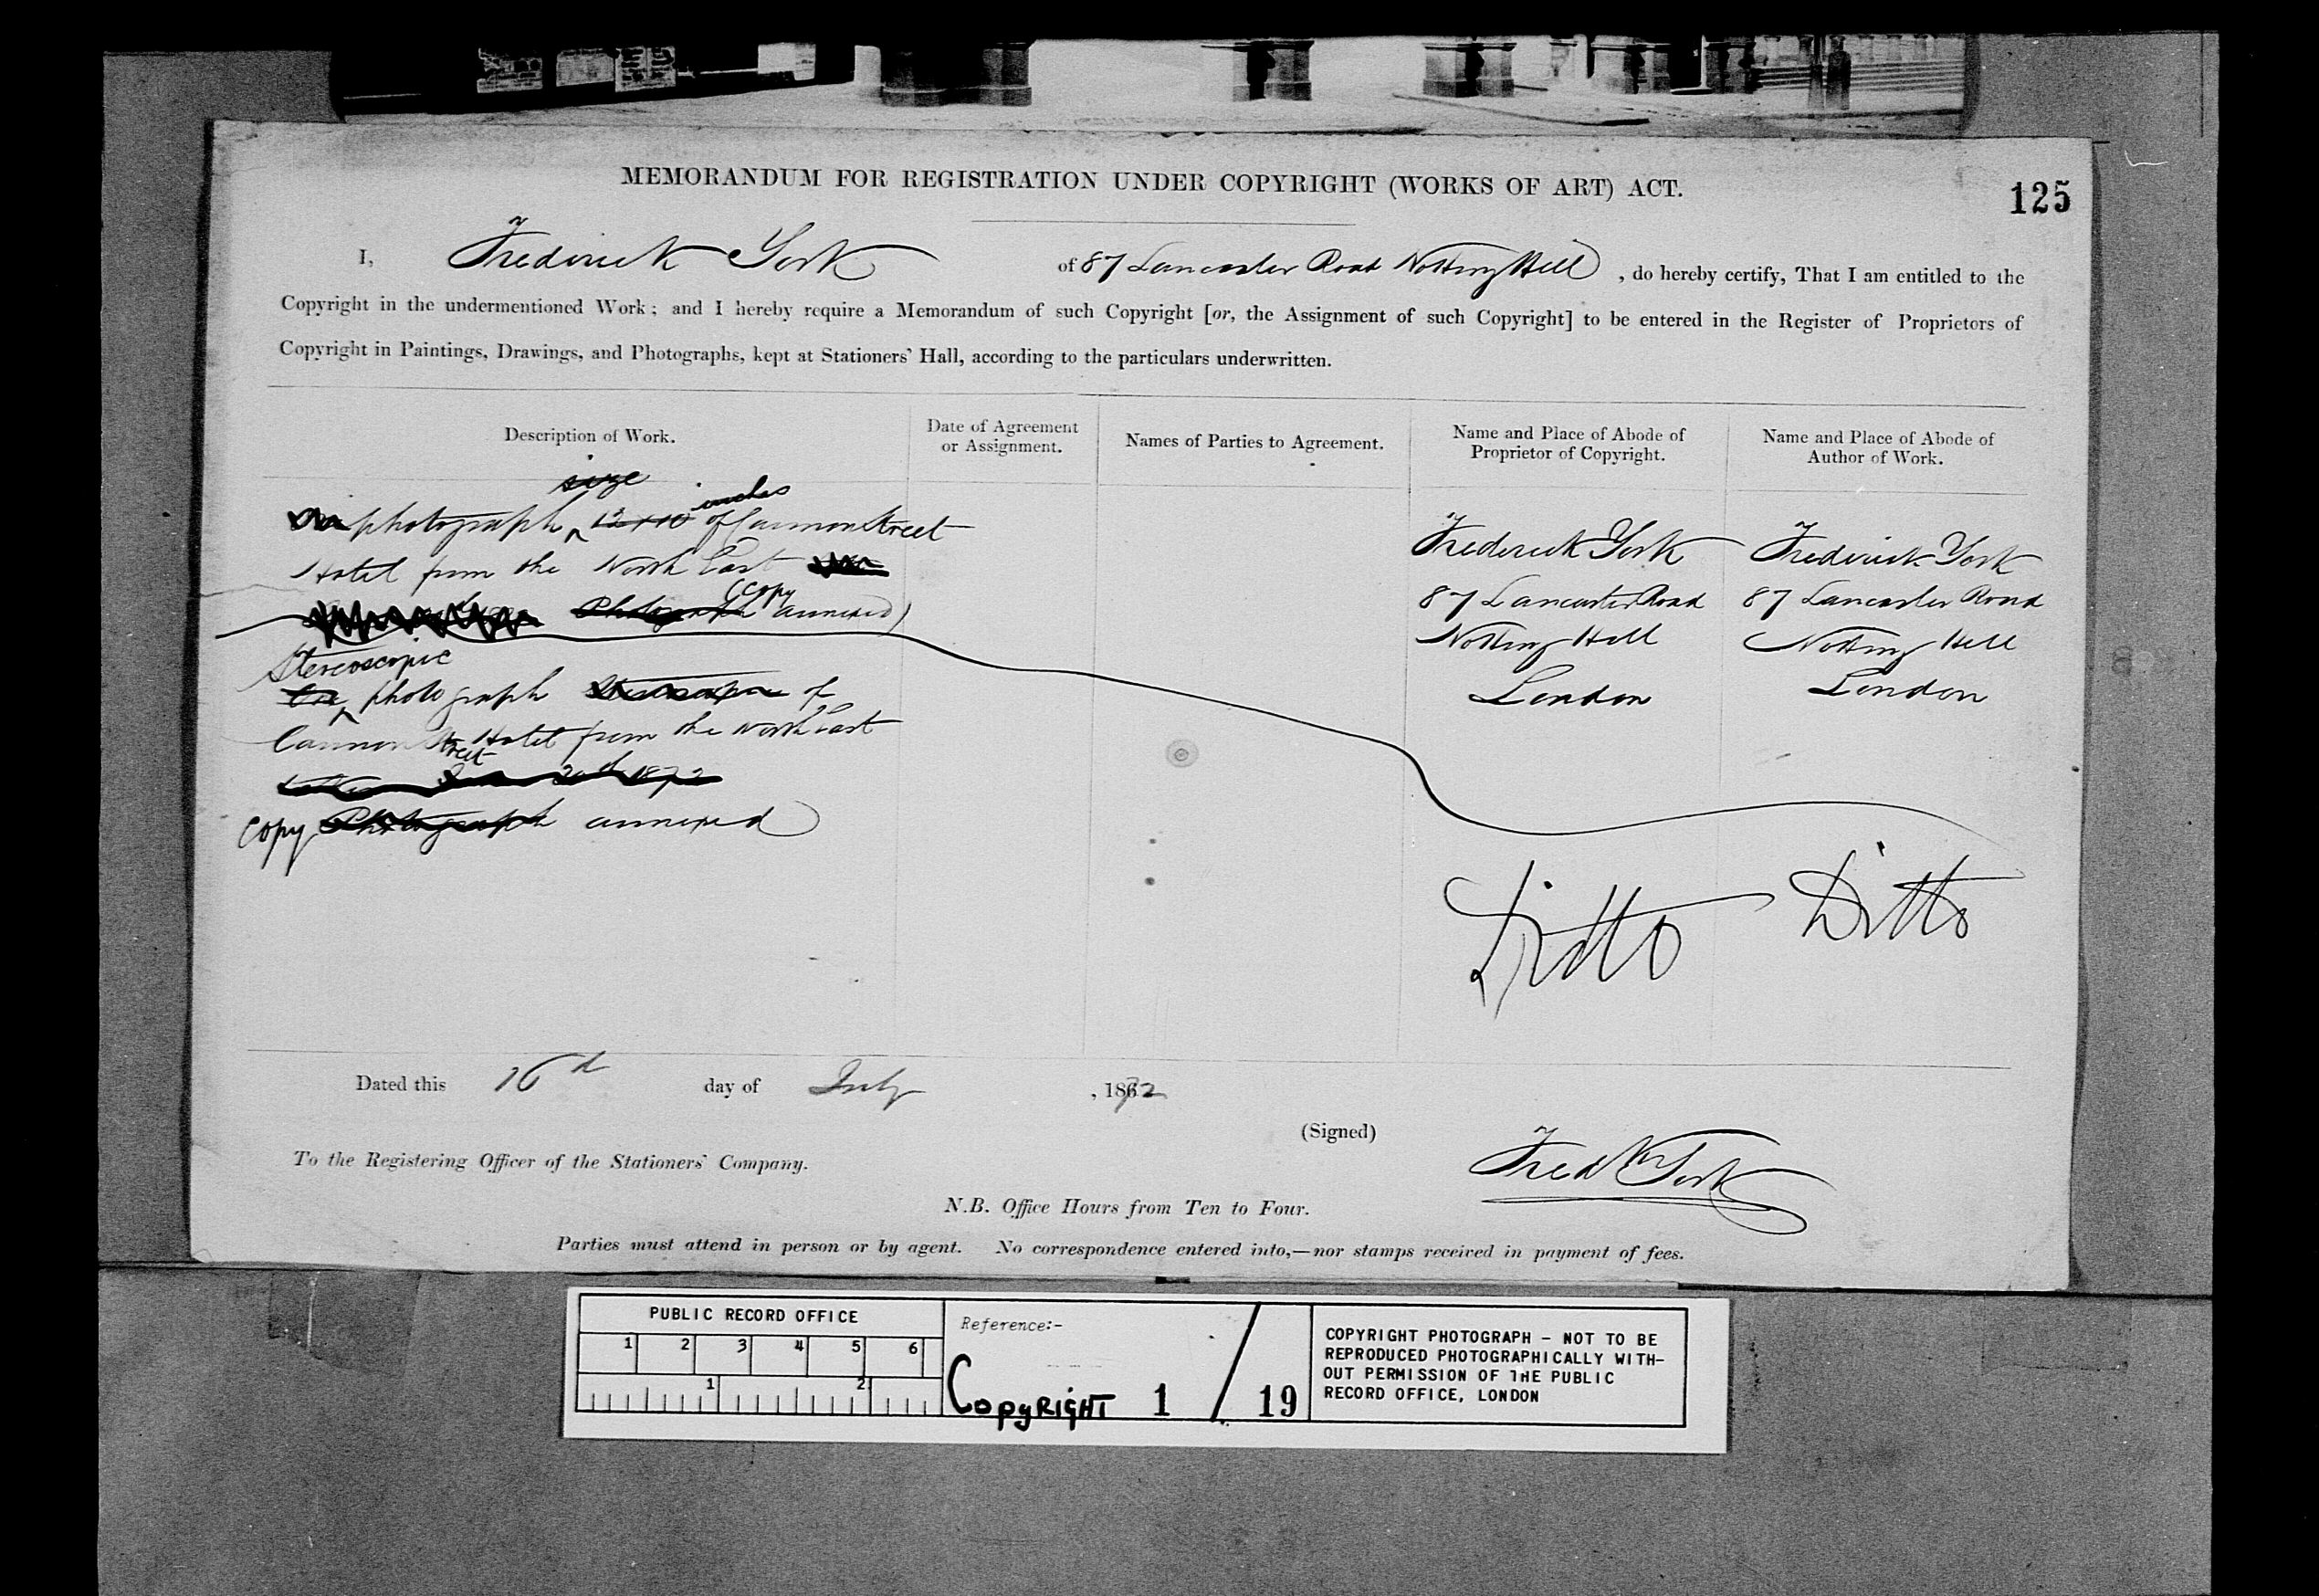 MEMORANDUM FOR REGISTRATION UNDER COPYRIGHT (WORKS OF ART) ACT.
125
I, Frederick York of 87 Lancaster Road Notting Hill, do hereby certify, That I am entitled to the
Copyright in the undermentioned Work; and I hereby require a Memorandum of such Copyright [or, the Assignment of such Copyright] to be entered in the Register of Proprietors of
Copyright in Paintings, Drawings, and Photographs, kept at Stationers' Hall, according to the particulars underwritten.
Description of Work.
Date of Agreement
or Assignment.
Names of Parties to Agreement.
Name and Place of Abode of
Proprietor of Copyright.
Name and Place of Abode of
Author of Work.
size
inches
photograph 12 x 10 of Cannon Street
Hotel from the North East
(Copy
Photograph annexed)
Stereoscopic
One photograph Stereoscopic of
Cannon Street Hotel from the North East
June 20th 1872
Copy Photograph annexed
Frederick York
87 Lancaster Road
Notting Hill
London
Frederick York
87 Lancaster Road
Notting Hill
London
Ditto
Ditto
Dated this 16th day of July, 1872
(Signed)
Fredk York
To the Registering Officer of the Stationers' Company.
N.B. Office Hours from Ten to Four.
Parties must attend in person or by agent. No correspondence entered into,—nor stamps received in payment of fees.
PUBLIC RECORD OFFICE
1 2 3 4 5 6
1 2
Reference:-
COPYRIGHT 1 / 19
COPYRIGHT PHOTOGRAPH - NOT TO BE
REPRODUCED PHOTOGRAPHICALLY WITH-
OUT PERMISSION OF THE PUBLIC
RECORD OFFICE, LONDON